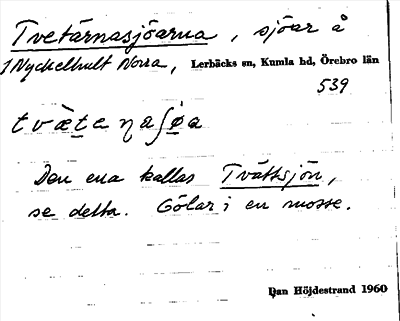 Tvetärnasjöarna, sjöar å
1 Nyckelhult Norra, Lerbäcks sn, Kumla hd, Örebro län
539
Den ena kallas Tvättsjön,
se detta. Gölar i en mosse.
Dan Höjdestrand 1960